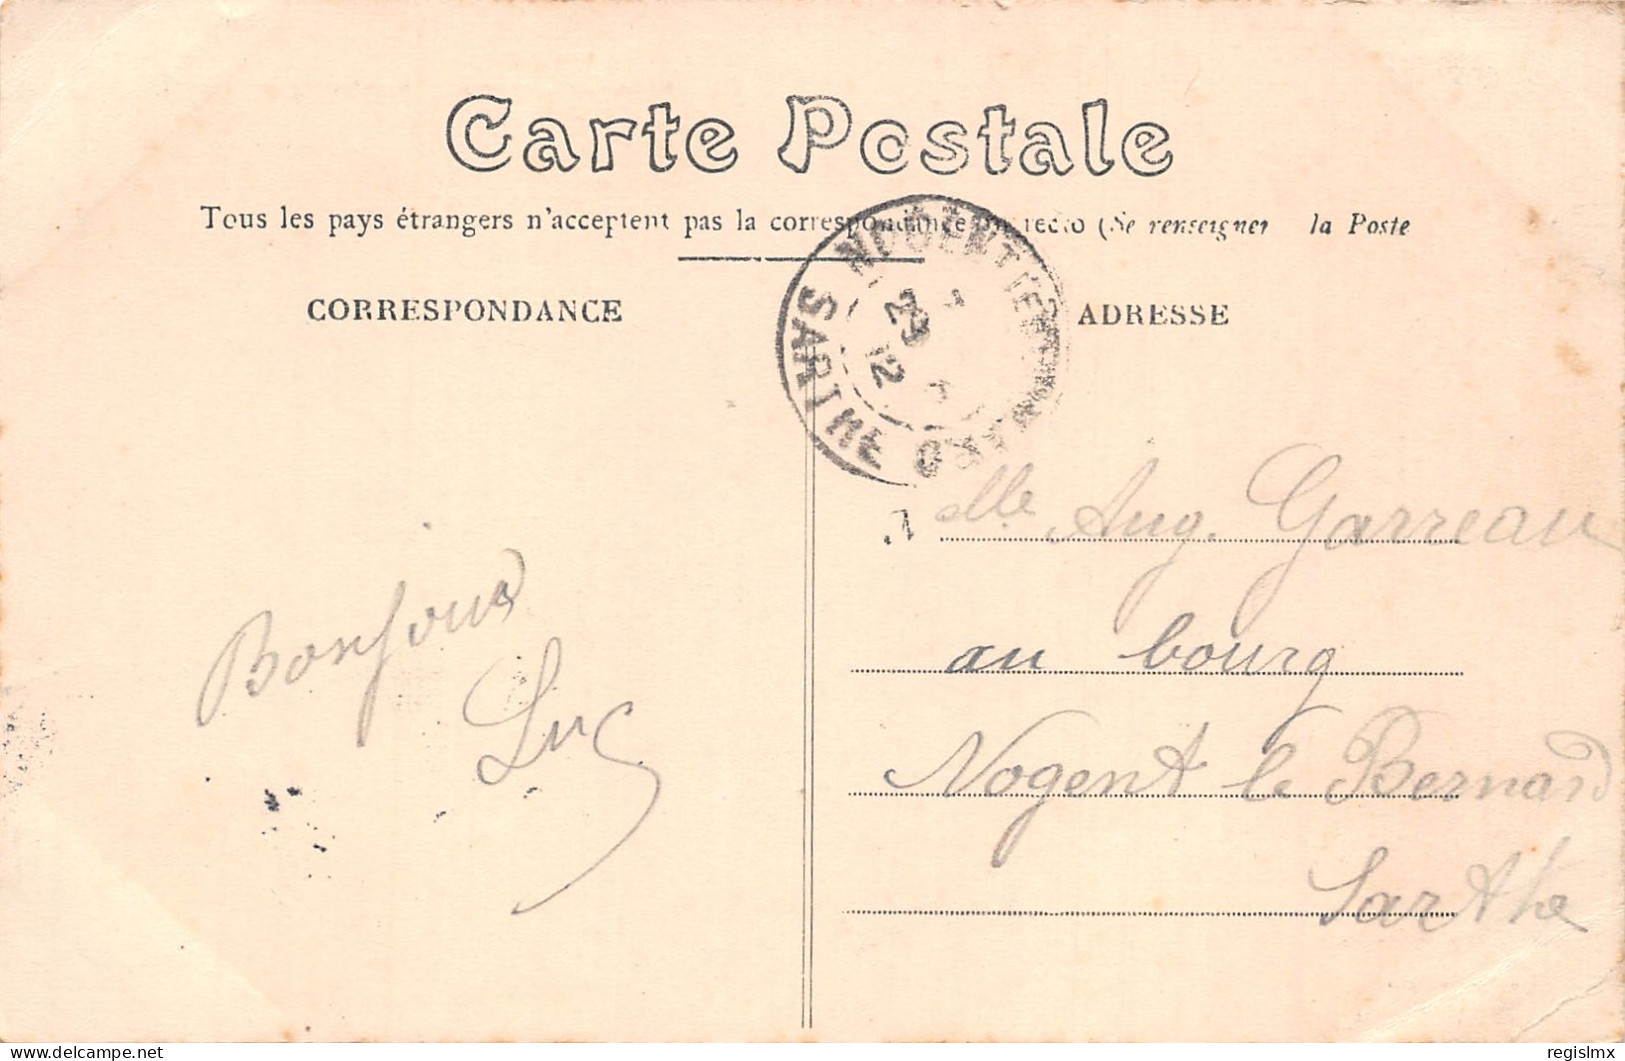 Carte Postale
Tous les pays étrangers n'acceptent pas la correspondance au recto (Se renseigner la Poste
CORRESPONDANCE
ADRESSE
NOGENT-LE-BERNARD
SARTHE
23
12
Mlle Aug. Garreau
au bourg
Nogent le Bernard
Sarthe
Bonjour
Luc
delcampe.net
regislmx